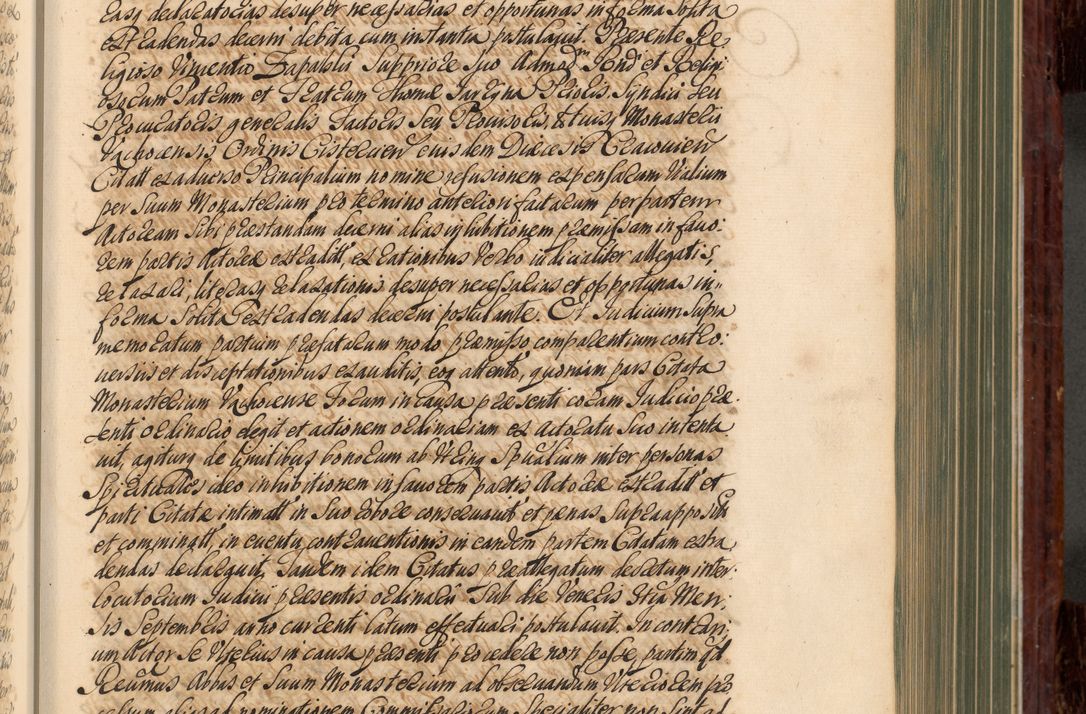 easq declaratorias desuper necessarias et opportunas in forma solita
extradendas decerni debita cum instantia postulavit. Præsente Re
ligioso Vincentio Suppriore suo Admod Rndi et Religi
osorum Patrum et Fratrum Thomæ Prioris Syndici seu
Procuratoris generalis Factoris seu Provisoris, & tuisq Monasterii
Vachocensis, Ordinis Cisterciens euisdem Diæcesis Cracovien
Citatt ex adverso Principalium nomine refusionem expensarum Vialium
per suum Monasterium pro termino anteriori factarum per partem
Actoream sibi præstandam decerni alias inhibitionem præmissam in favo:
rem partis Actoreæ extraditt, ex rationibus Verbo iudicialiter allegatis,
relaxari, literasq relaxationis desuper necessarias et opportunas in=
forma solita extradendas decerni postulante. Et Judicium supra
memoratum partium præfatarum modo præmisso comparentium contro:
versiis et disceptationibus exauditis, eoq attento, quoniam pars Citata
Monasterium Vachocense Forum in causa præsenti coram Judicio præ.
senti ordinario elegit et actionem ordinariam ex Actoratu suo intenta
vit, agiturq de limitibus bonorum ab utrinq Spualium inter personas
Spirituales ideo inhibitionem in favorem partis Actoreæ extraditt et
parti Citatæ intimatt in suo robore conservavit et pænas supra apposit
et comminatt, in eventu contraventionis in eandem partem Citatam extra
dendas declaravit, Tandem idem Citatus præallegatum decretum inter:
locutorium Judicii præsentis ordinarii sub die Veneris 4tia Men:
sis Septembris anno currenti latum effectuari postulavit. In contrari
um Actor se ulterius in causa præsenti procedere non posse, partim qd
Rerumus Abbas et suum Monasterium ad observandum